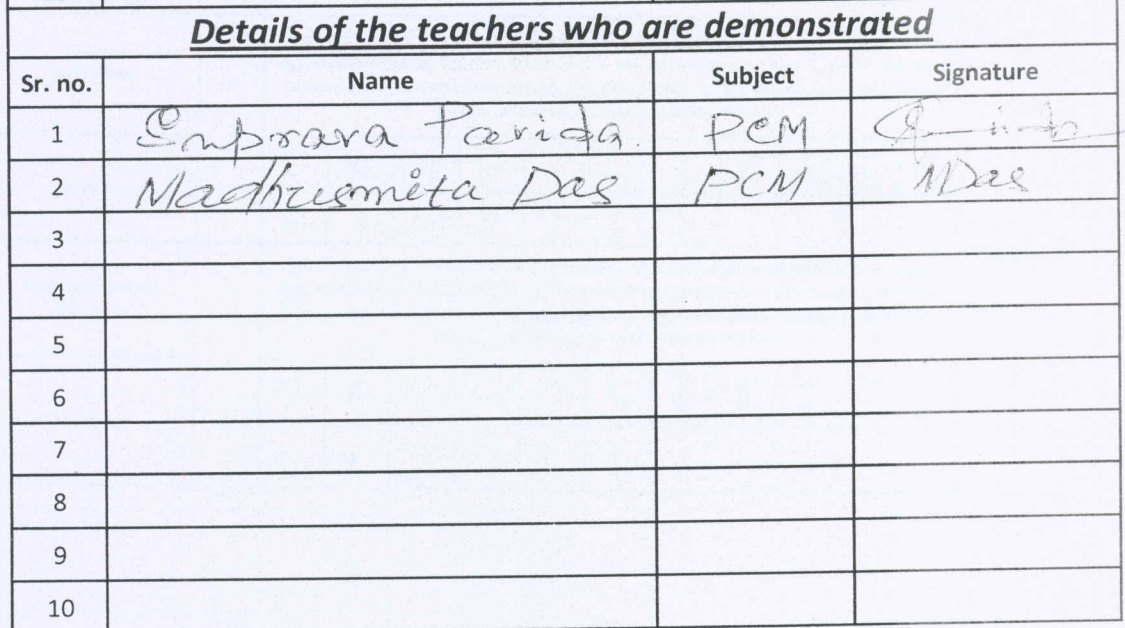 Details of the teachers who are demonstrated
Sr. no. Name Subject Signature
1 Suprava Parida PCM
2 Madhusmita Das PCM MDas
3
4
5
6
7
8
9
10